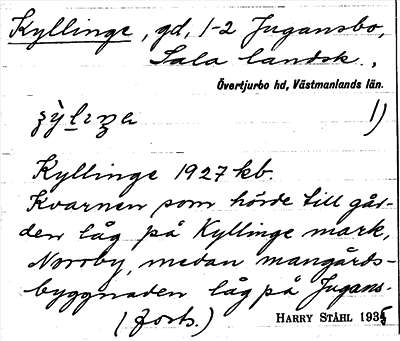 Kyllinge, gd, 1-2 Jugansbo,
Sala landsk.,
Övertjurbo hd, Västmanlands län.
1)
Kyllinge 1927 kb.
Kvarnen som hörde till går-
den låg på Kyllinge mark,
Norrby, medan mangårds-
byggnaden låg på Jugans-
(forts.)
HARRY STÅHL 1935